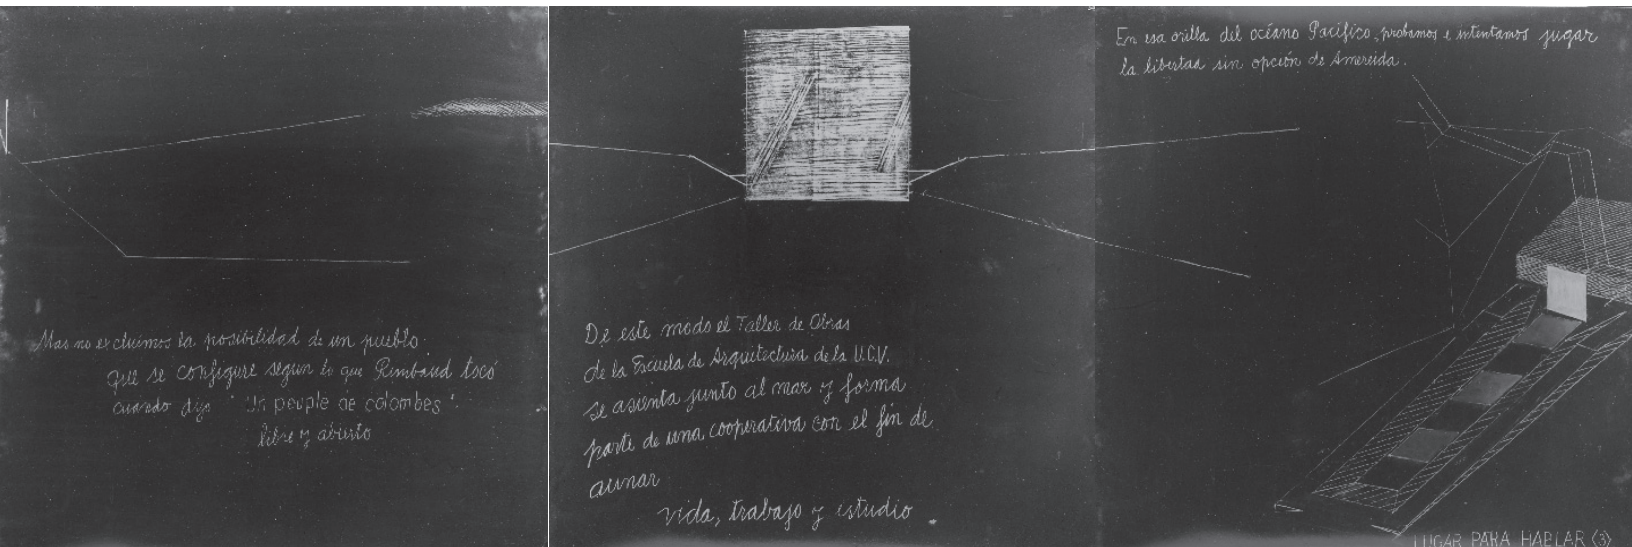 Mas no excluimos la posibilidad de un pueblo
que se configure segun lo que Rimbaud tocó
cuando dijo "Un peuple de colombes".
libre y abierto
De este modo el Taller de Obras
de la Escuela de Arquitectura de la U.C.V.
se asienta junto al mar y forma
parte de una cooperativa con el fin de
aunar
vida, trabajo y estudio.
En esa orilla del océano Pacífico, probamos e intentamos jugar
la libertad sin opción de Amereida.
LUGAR PARA HABLAR (3)